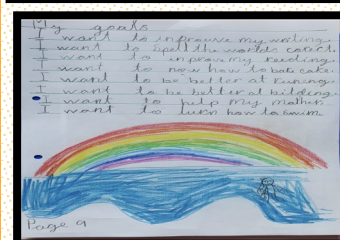 My goals
I want to improuve my writing.
I want to spell the words corect.
I want to improve my reeding.
I want to now how to bake cake.
I want to be better at runing.
I want to be better at bilding.
I want to help my mother.
I want to lurn how to swim
Page 9